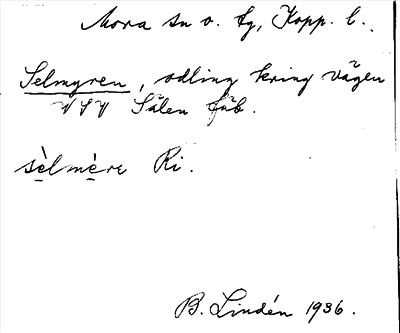 Mora sn o. tg, Kopp. l.
Selmyren, odling kring vägen
VSV Sälen fäb.
sèlmère Ri.
B. Lindén 1936.